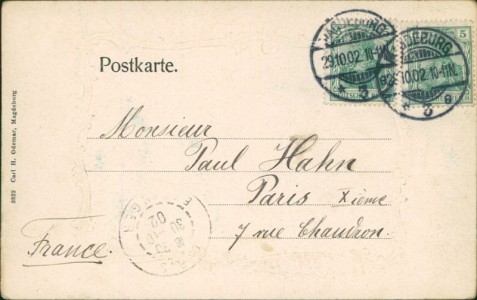 MAGDEBURG
29.10.02.10-11N.
* 3 g
MAGDEBURG
10.02.10-11N.
* 3 g
5
Postkarte.
Monsieur
Paul Hahn
Paris Xième
7 rue Chaudron.
France.
30
02
3922 Carl H. Odemar, Magdeburg